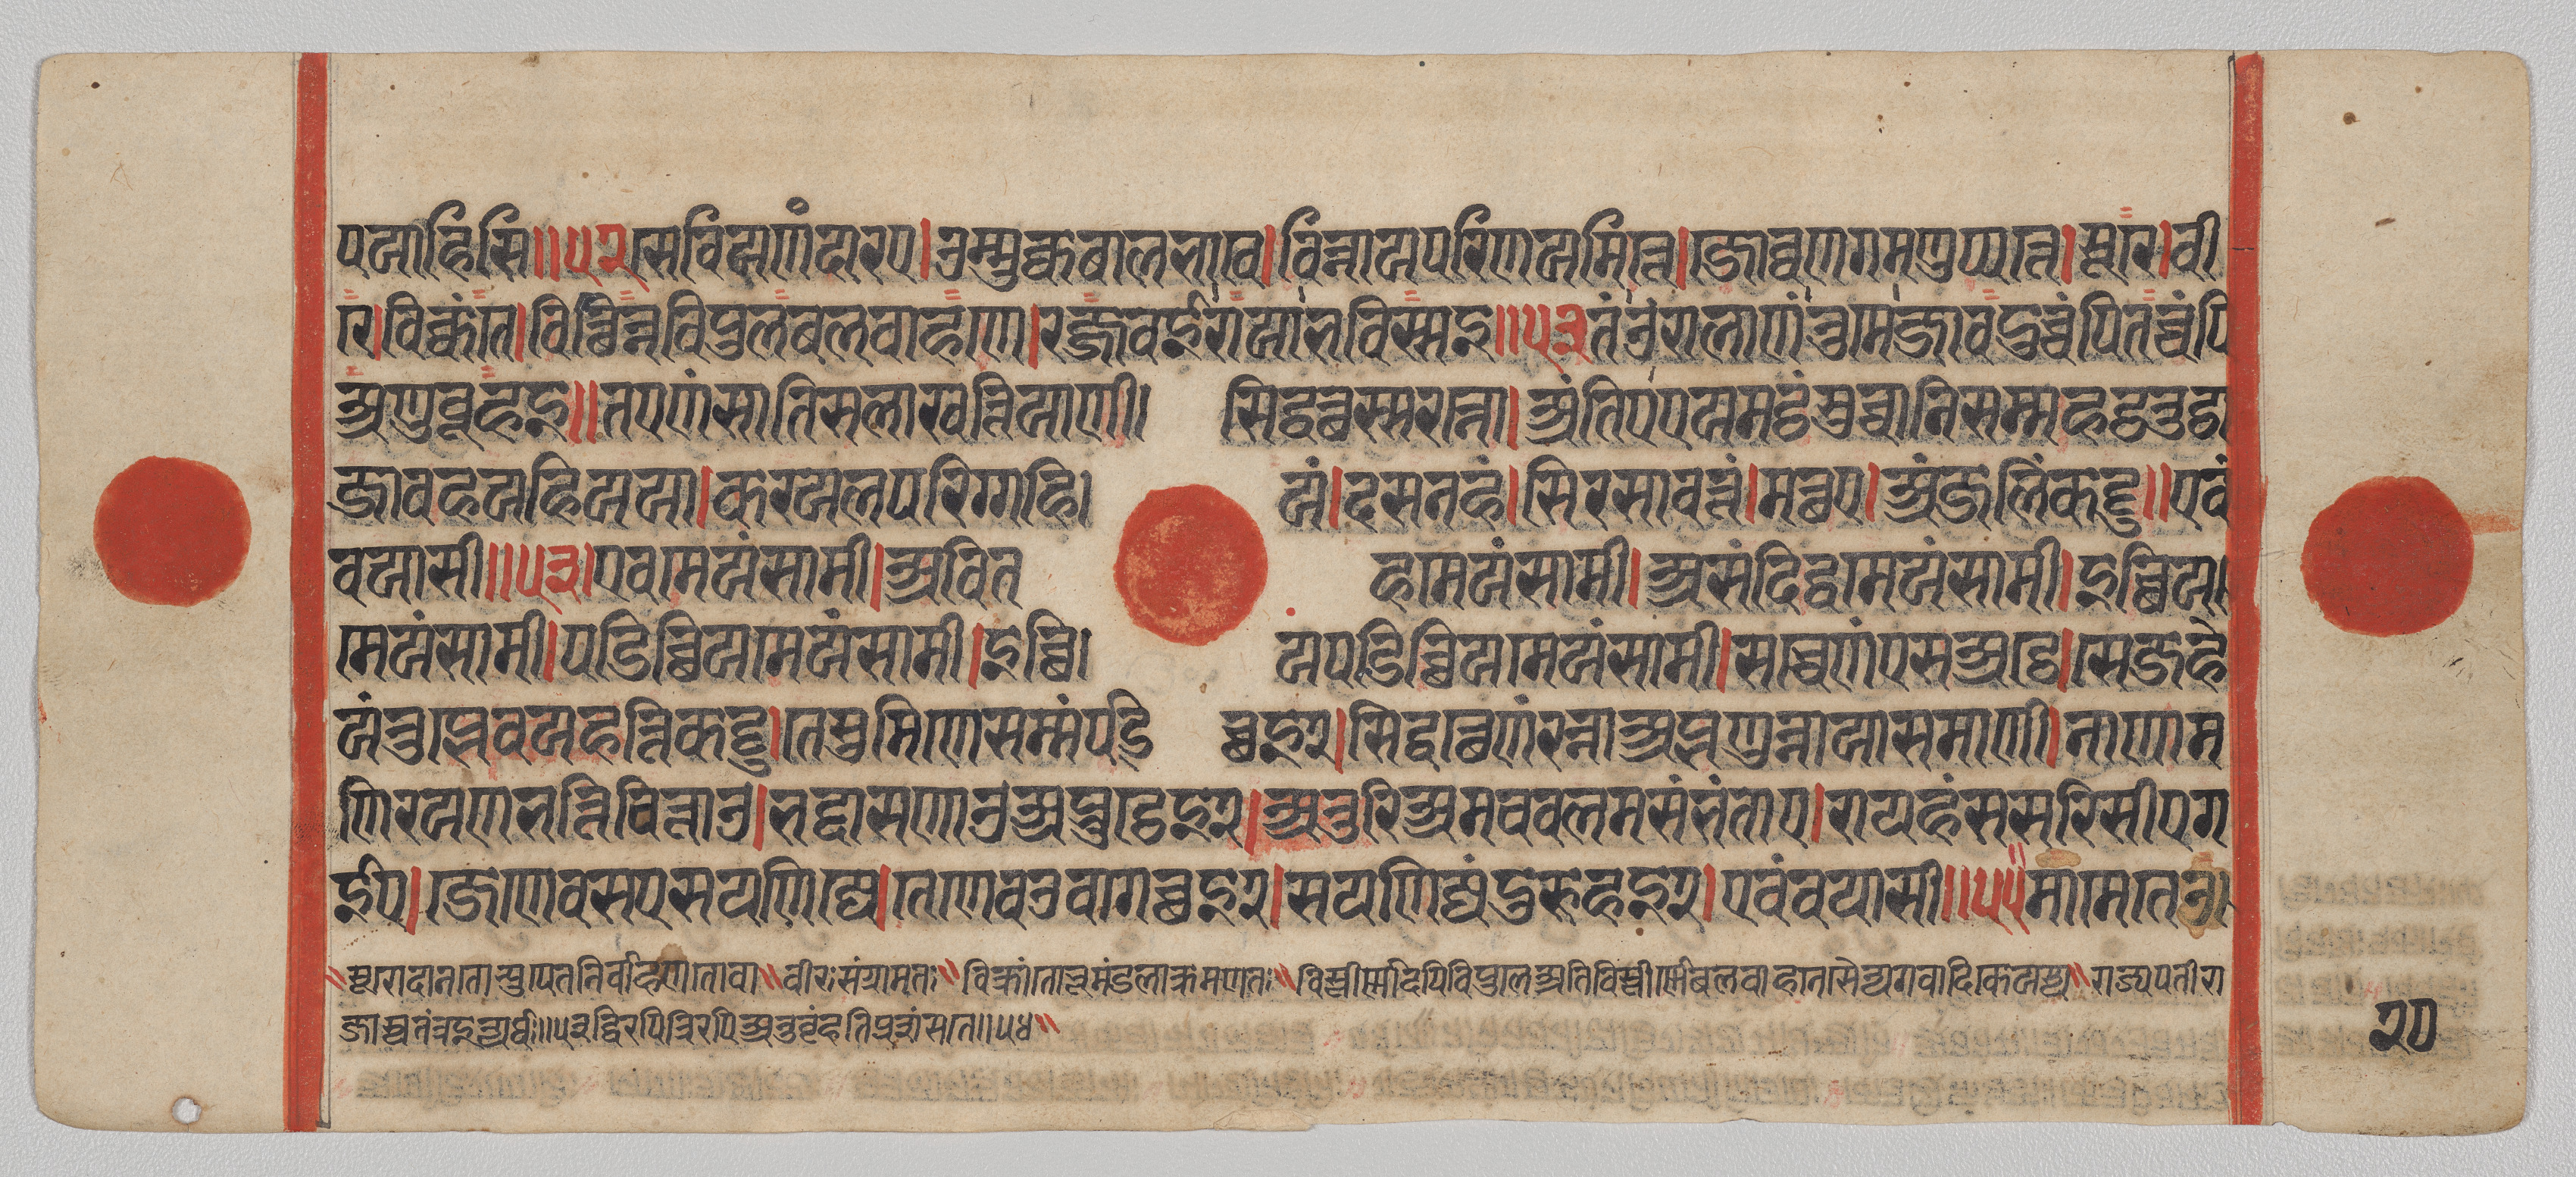 पयाहिसि॥५२सेवियणंदारए।उम्मुक्कबालभावे।विन्नायपरिणयमित्ते।जोव्वणगमणुप्पत्ते।सूरे।वी
रे।विक्कंते।विच्छिन्नविपुलबलवाहणे।रज्जवईरायाभविस्सइ॥५३तंउरालाणंतुमेजावदुच्चंपितच्चंपि
अणुवूहइ॥तएणंसातिसलाखत्तिआणी। सिद्धत्थस्सरन्नो।अंतिएएयमट्ठंसुच्चानिसम्महट्ठतुट्ठा
जावहयहियया।करयलपरिग्गहि। यं।दसनहं।सिरसावत्तं।मत्थए।अंजलिंकट्टु॥एवं
वयासी॥५३।एवमेयंसामी।अवित हमेयंसामी।असंदिद्धमेयंसामी।इच्छिय।
मेयंसामी।पडिच्छियमेयंसामी।इच्छि। यपडिच्छियमेयंसामी।सच्चेणंएसअट्ठे।सेजहे
यंतुब्भेवयहत्तिकट्टु।तेसुमिणेसम्मंपडि च्छइ२।सिद्धत्थेणंरन्नाअब्भणुन्नायासमाणी।नाणाम
णिरयणभत्तिचित्ताउ।भद्दासणाउअब्भुट्ठेइ२।अतुरिअमचवलमसंभंताए।रायहंससरिसीएग
ईए।जेणेवसएसयणिज्जे।तेणेवउवागच्छइ२।सयणिज्जंदुरुहइ२।एवंवयासी॥५५मामेतेउ।
शूरोदानतोभ्युपेतनिर्वाहणतोवा॥वीरःसंग्रामतः॥विक्रांतोभूमंडलाक्रमणतः॥विस्तीर्णादपिविपुलेअतिविस्तीर्णेबलवाहनेसेन्यगवादिकेयस्य॥राज्यपतीरा
जास्वतंत्रइत्यर्थः॥५३द्विरपित्रिरपिअनुबृंहतिप्रशंसति॥५४॥
२०